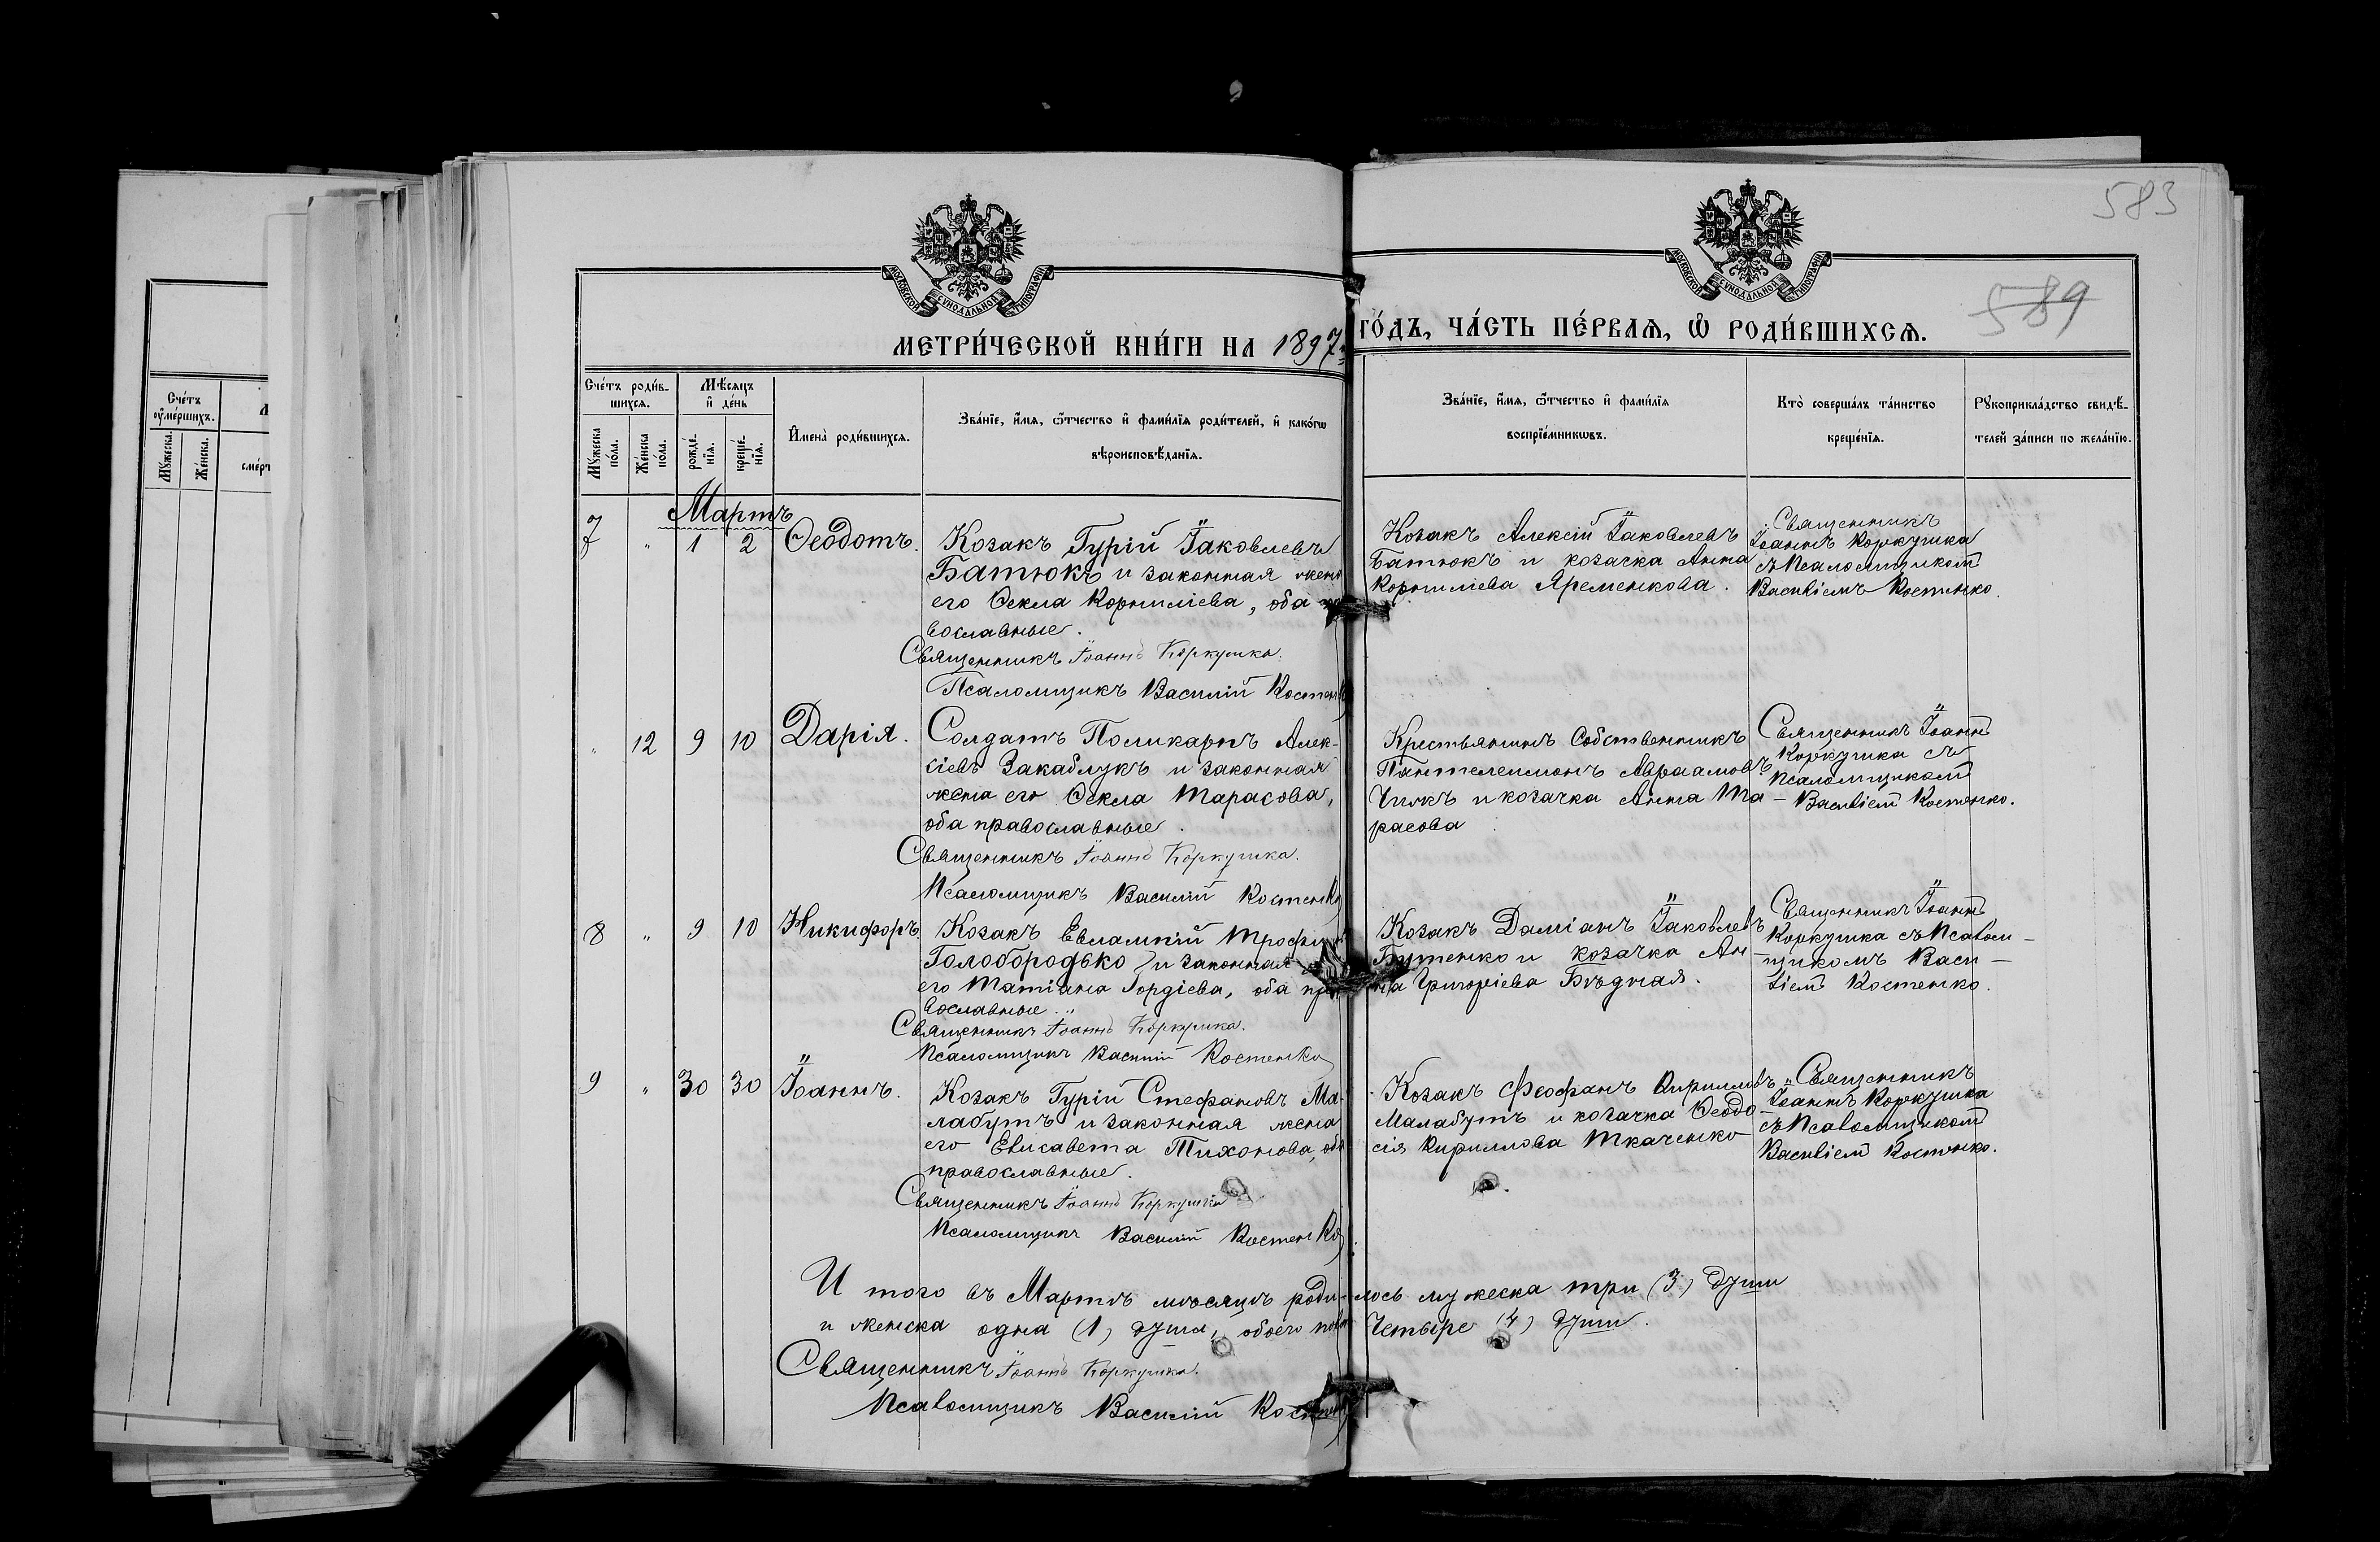 583
589
МОСКОВСКОЙ СѴНОДАЛЬНОЙ ТИПОГРАФІИ
МОСКОВСКОЙ СѴНОДАЛЬНОЙ ТИПОГРАФІИ
МЕТРИ́ЧЕСКОЙ КНИ́ГИ НА 1897 ГО́ДЪ, ЧА́СТЬ ПЕ́РВАѦ, Ѡ҆ РОДИ́ВШИХСѦ.
Счéтъ
ᲂу҆ме́ршихъ.
Мꙋ́жеска.
Же́нска.
Сче́тъ роди́в-
шихсѧ.
Мꙋ́жеска
по́ла.
Же́нска
по́ла.
Мѣ́сѧцъ
и҆ де́нь
рожде́-
нїѧ.
креще́-
нїѧ.
И҆мена̀ роди́вшихсѧ.
Зва́нїе, и҆́мѧ, ѻ҆́тчество и҆ фами́лїѧ роди́телей, и҆ како́гѡ
вѣроисповѣ́данїѧ.
Зва́нїе, и҆́мѧ, ѻ҆́тчество и҆ фами́лїѧ
воспрїе́мникѡвъ.
Кто̀ соверша́лъ та́инство
креще́нїѧ.
Рꙋкоприкла́дство свидѣ́-
телей за́писи по жела́нїю.
Мартъ
7 " 1 2 Ѳеодотъ.
Козакъ Гурій Іаковлевъ
Батюкъ и законная жена
его Ѳекла Корниліева, оба
вославные.
Священникъ Іоаннъ Коркушка.
Псаломщикъ Василій Костенко
Козакъ Алексій Іаковлевъ
Батюкъ и козачка Анна
Корниліева Яременкова.
Священникъ
Іоаннъ Коркушка
съ Псаломщикомъ
Василіемъ Костенко.
" 12 9 10 Дарія.
Солдатъ Поликарпъ Алек-
сіевъ Закаблукъ и законная
жена его Ѳекла Тарасова,
оба православные.
Священникъ Іоаннъ Коркушка.
Псаломщикъ Василій Костенко
Крестьянинъ Собственникъ
Пантелеимонъ Авраамовъ
Чижъ и козачка Анна Та-
расова
Священникъ Іоаннъ
Коркушка съ
Псаломщикомъ
Василіемъ Костенко.
8 " 9 10 Никифоръ.
Козакъ Евлампій
Голобородько и законная
его Татіана Гордіева, оба пра
вославные.
Священникъ Іоаннъ Коркушка.
Псаломщикъ Василій Костенко
Козакъ Даміанъ Іаковлевъ
Бутенко и козачка Ан
на Григоріева Бѣдная.
Священникъ Іоаннъ
Коркушка съ Псалом-
щикомъ Васи-
ліемъ Костенко.
9 " 30 30 Іоаннъ.
Козакъ Гурій Стефановъ Ма-
лабутъ и законная жена
его Елисавета Тихонова, оба
православные.
Священникъ Іоаннъ Коркушка
Псаломщикъ Василій Костенко
Козакъ Феофанъ Кирилловъ
Малабутъ и козачка Ѳеодо-
сія Кириллова Ткаченко
Священникъ
Іоаннъ Коркушка
съ Псаломщикомъ
Василіемъ Костенко.
И того въ Мартѣ мѣсяцѣ родилось мужеска три (3) души
и женска одна (1) душа, обоего пола четыре (4) души.
Священникъ Іоаннъ Коркушка.
Псаломщикъ Василій Костенко